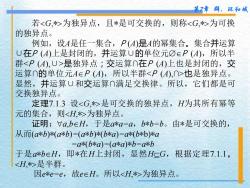 第7章 群、环和域
若<G,*>为独异点,且*是可交换的,则称<G,*>为可换
的独异点。
例如,设A是任一集合,P(A)是A的幂集合。集合并运算
∪在P(A)上是封闭的,并运算∪的单位元∅∈P(A),所以半
群<P(A),∪>是独异点;交运算∩在P(A)上也是封闭的,交
运算∩的单位元A∈P(A),所以半群<P(A),∩>也是独异点。
显然,并运算∪和交运算∩满足交换律。所以,它们都是可
交换独异点。
定理7.1.3 设<G,*>是可交换的独异点,H为其所有幂等
元的集合,则<H,*>为独异点。
证明:∀a,b∈H,于是a*a=a,b*b=b。由*是可交换的,
从而(a*b)*(a*b)=(a*b)*(b*a)=a*(b*b)*a
=a*(b*a)=(a*a)*b=a*b
于是a*b∈H,即*在H上封闭。显然H⊆G,根据定理7.1.1,
<H,*>是半群。
因e*e=e,故e∈H。所以<H,*>为独异点。